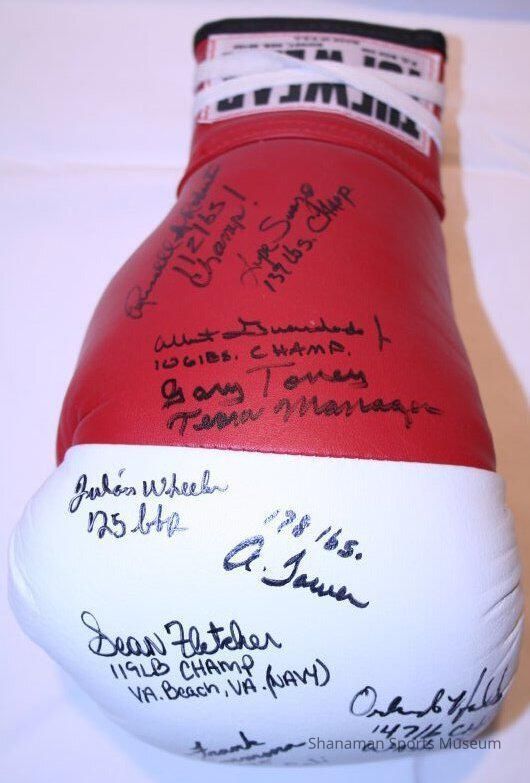 TUF WEAR
TUF WEAR
112 lbs
Champ!
Lupe Suazo
139 lbs. CHAMP
Albert Guardado Jr
106 LBS. CHAMP.
Gary Toney
Team Manager
Julian Wheeler
125 lbs
178 lbs.
A. Tarver
Sean Fletcher
119LB CHAMP
VA. Beach, VA. (NAVY)
Orlando
147 lb
Frank
Shanaman Sports Museum